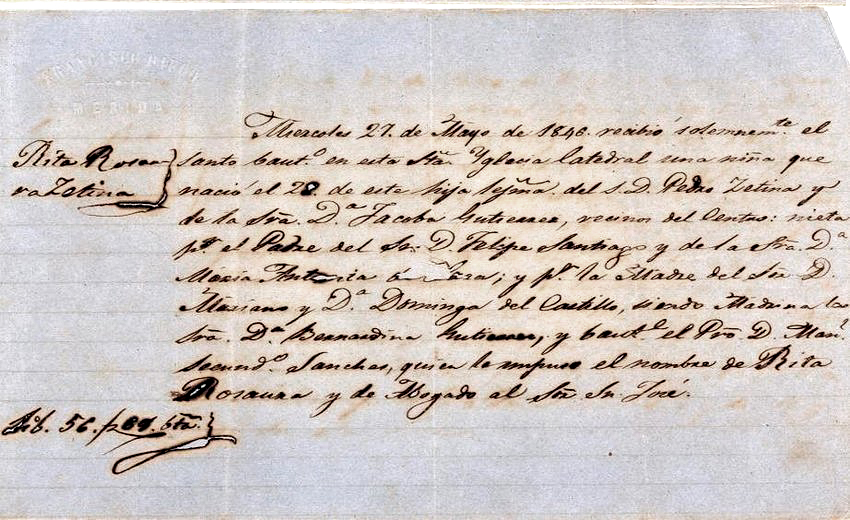 FRANCISCO
MERIDA
Miercoles 27. de Mayo de 1846. recibió solemnemte. el
Rita Rosau-
ra Zetina
santo baut.º en esta Sta. Yglecia Catedral una niña que
nació el 22 de este hija lejma. del S. D. Pedro Zetina y
de la Sra. D.ª Jacoba Gutierrez, vecinos del Centro: nieta
pr. el Padre del Sor. D. Felipe Santiago y de la Sra. D.ª
Maria Antonia; y pr. la Madre del Sor. D.
Mariano y D.ª Dominga del Castillo, siendo Madrina la
Sra. D.ª Bernardina Gutierrez, y baut.º el Pro. D. Manl.
Secund.º Sanches, quien le impuso el nombre de Rita
Rosaura y de Abogado al Sor. Sn. José.
Lib. 56. bta.